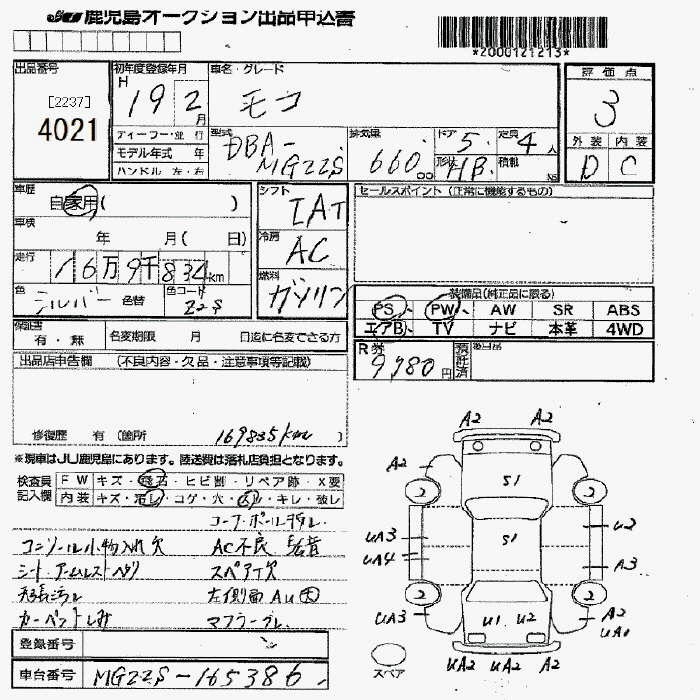 JU 鹿児島オークション出品申込書
*2000121213*
出品番号
[2237]
4021
初年度登録年月
H 19 2 月
車名・グレード
モコ
評価点
3
外装 内装
D C
ディーラー・並行
モデル年式 年
ハンドル 左・右
型式
DBA-MG22S
排気量
660 cc
ドア 5
定員 4 人
形状 HB
積載 KG
車歴
自家用( )
車検
年 月( 日)
走行
16万9千834km
色
シルバー 色替
色コード
Z2S
シフト
IAT
冷房
AC
燃料
ガソリン
セールスポイント (正常に機能するもの)
装備品(純正品に限る)
PS PW AW SR ABS
エアB TV ナビ 本革 4WD
保証書
有・無
名変期限 月 日迄に名変できる方
R券
9,980円
預託済
後日品
出品店申告欄 (不良内容・欠品・注意事項等記載)
修復歴 有 (箇所 169835km )
※現車はJU鹿児島にあります。陸送費は落札店負担となります。
検査員記入欄
FW キズ・飛石・ヒビ割・リペア跡・X要
内装 キズ・汚レ・コゲ・穴・スレ・キレ・破レ
コンソール小物入レ欠 AC不良
シート・アームレスト スペア欠
天張汚レ 左側面AU大
カーペットしみ マフラー
登録番号
車台番号 MG22S-165386
A2 A2
A2
S1
2 2
UA3 S1 U2
UA4 A3
2 2
UA3 U1 U2 A2
UA1
スペア
UA2 UA2 A2